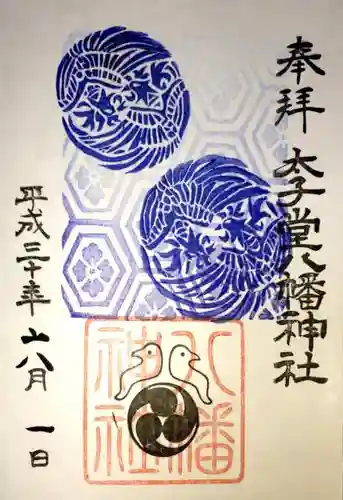 奉拝
太子堂八幡神社
平成三十年六月一日
八幡
神社